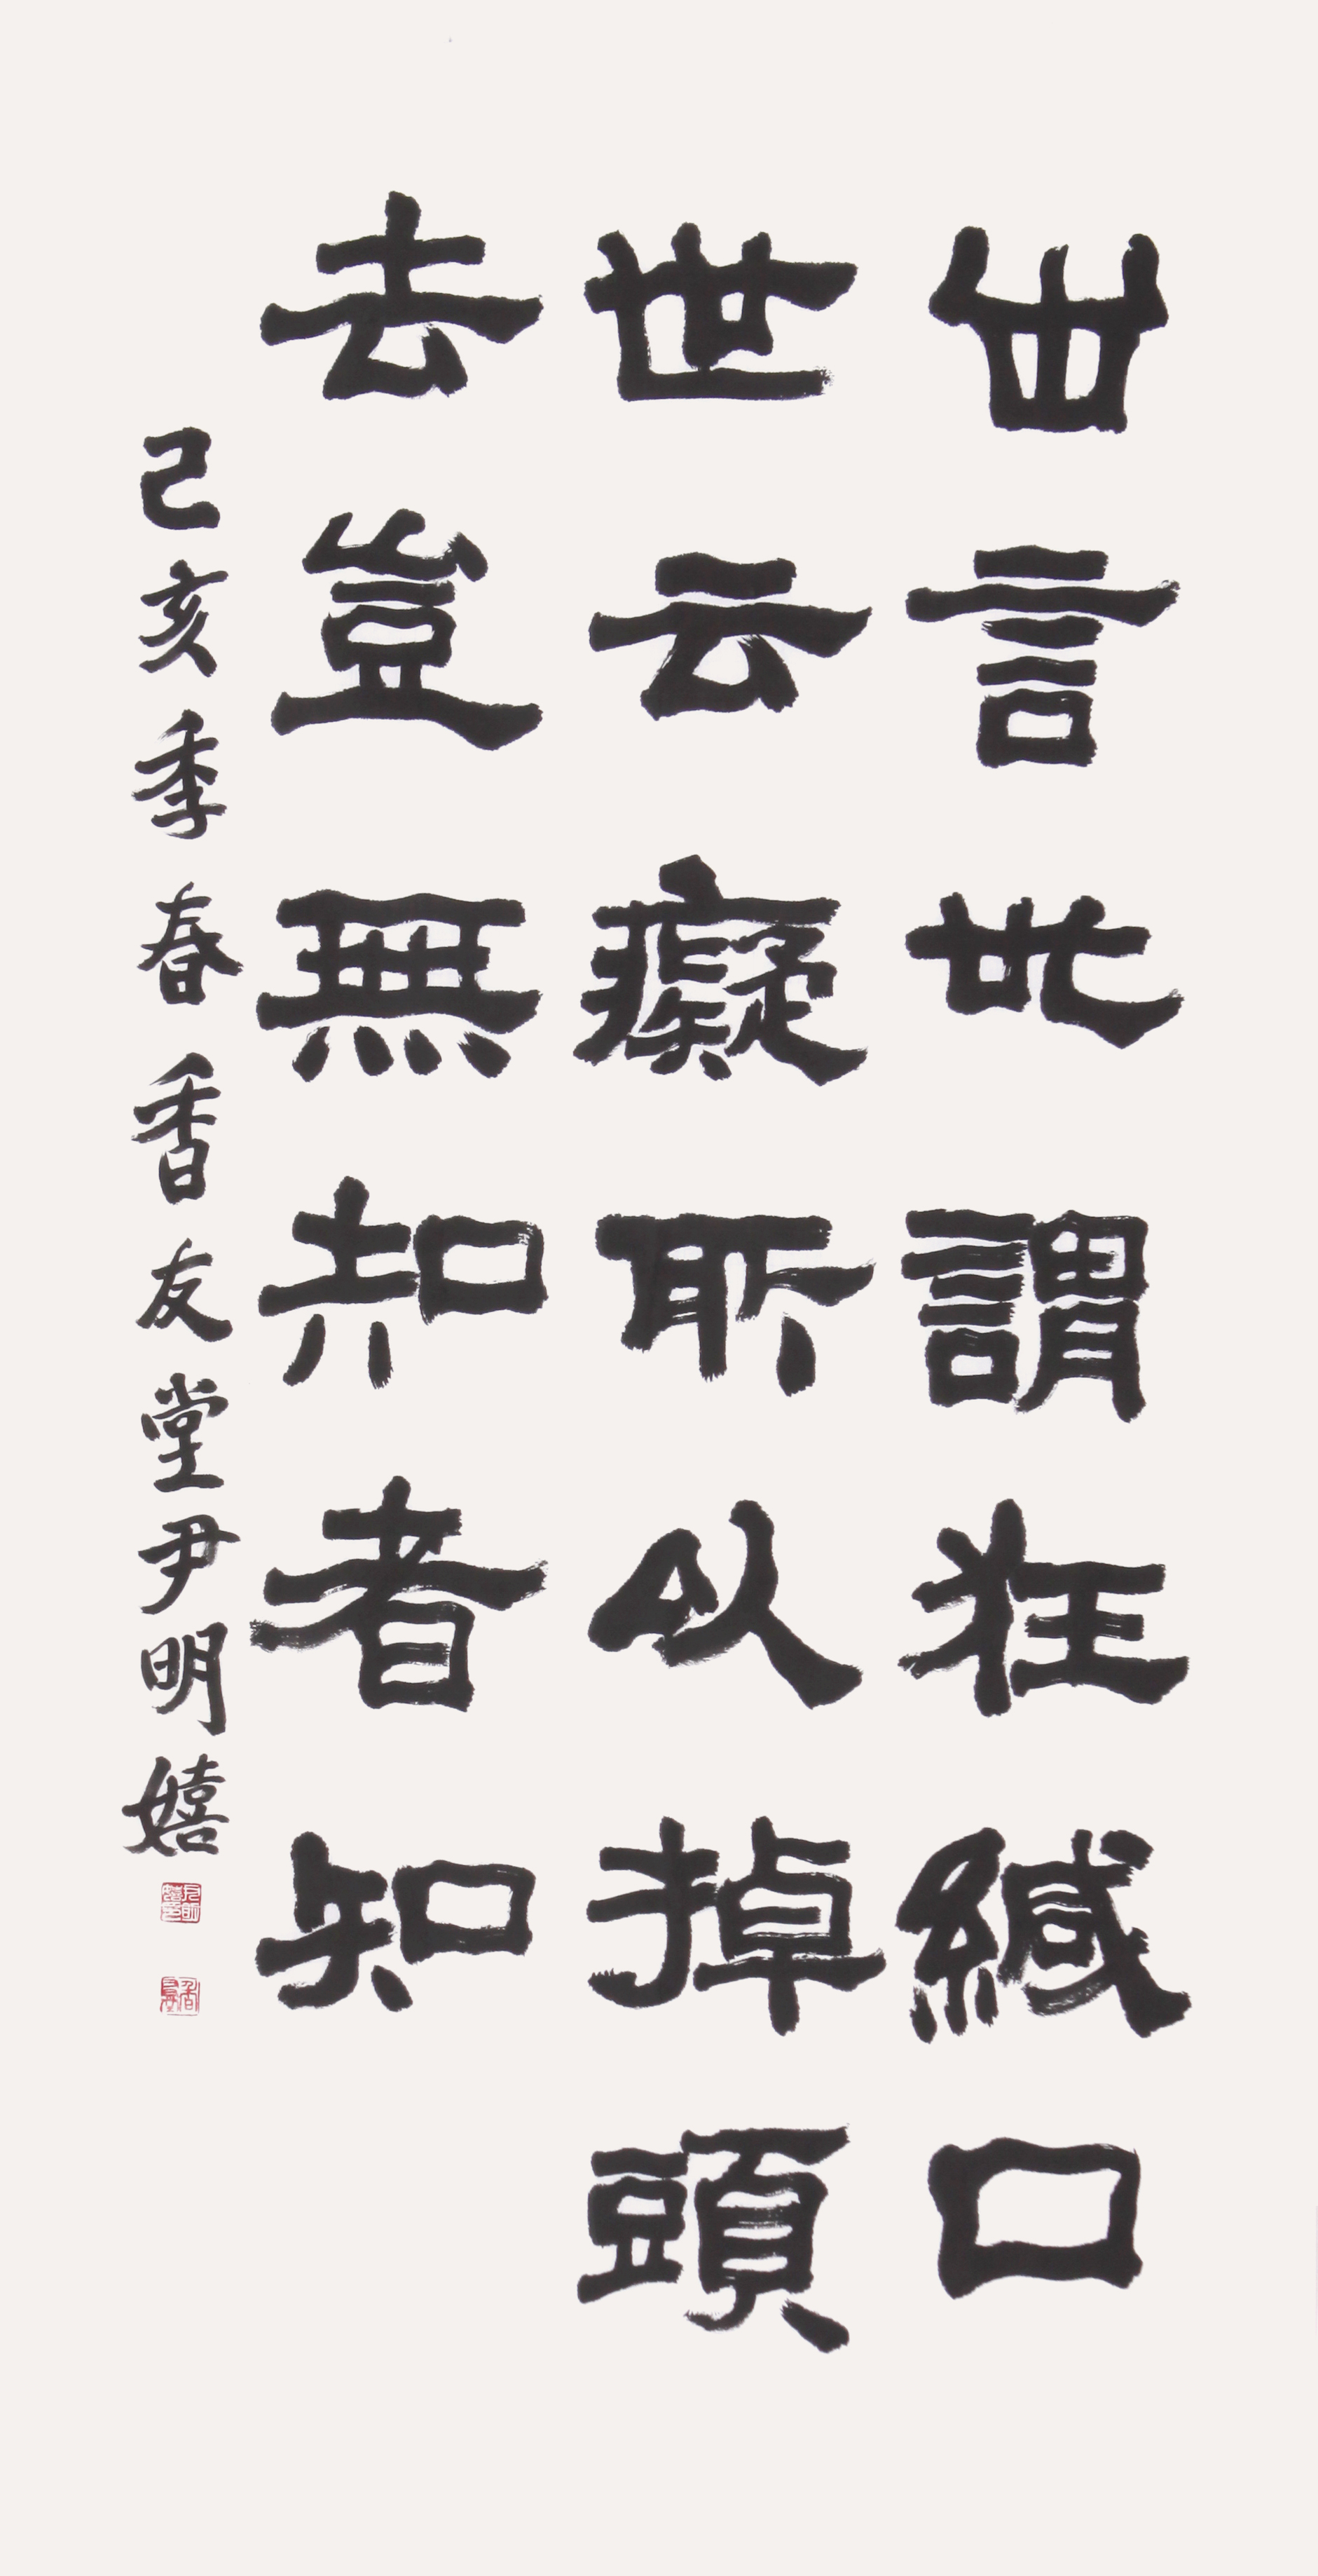 出言世謂狂緘口
世云癡所以掉頭
去豈無知者知
己亥季春香友堂尹明嬉